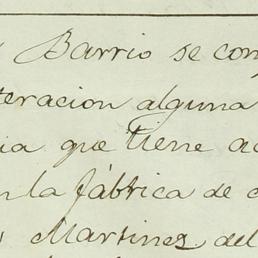 Barrio se con
teracion alguna
ia que tiene a
n la fábrica de c
Martinez del